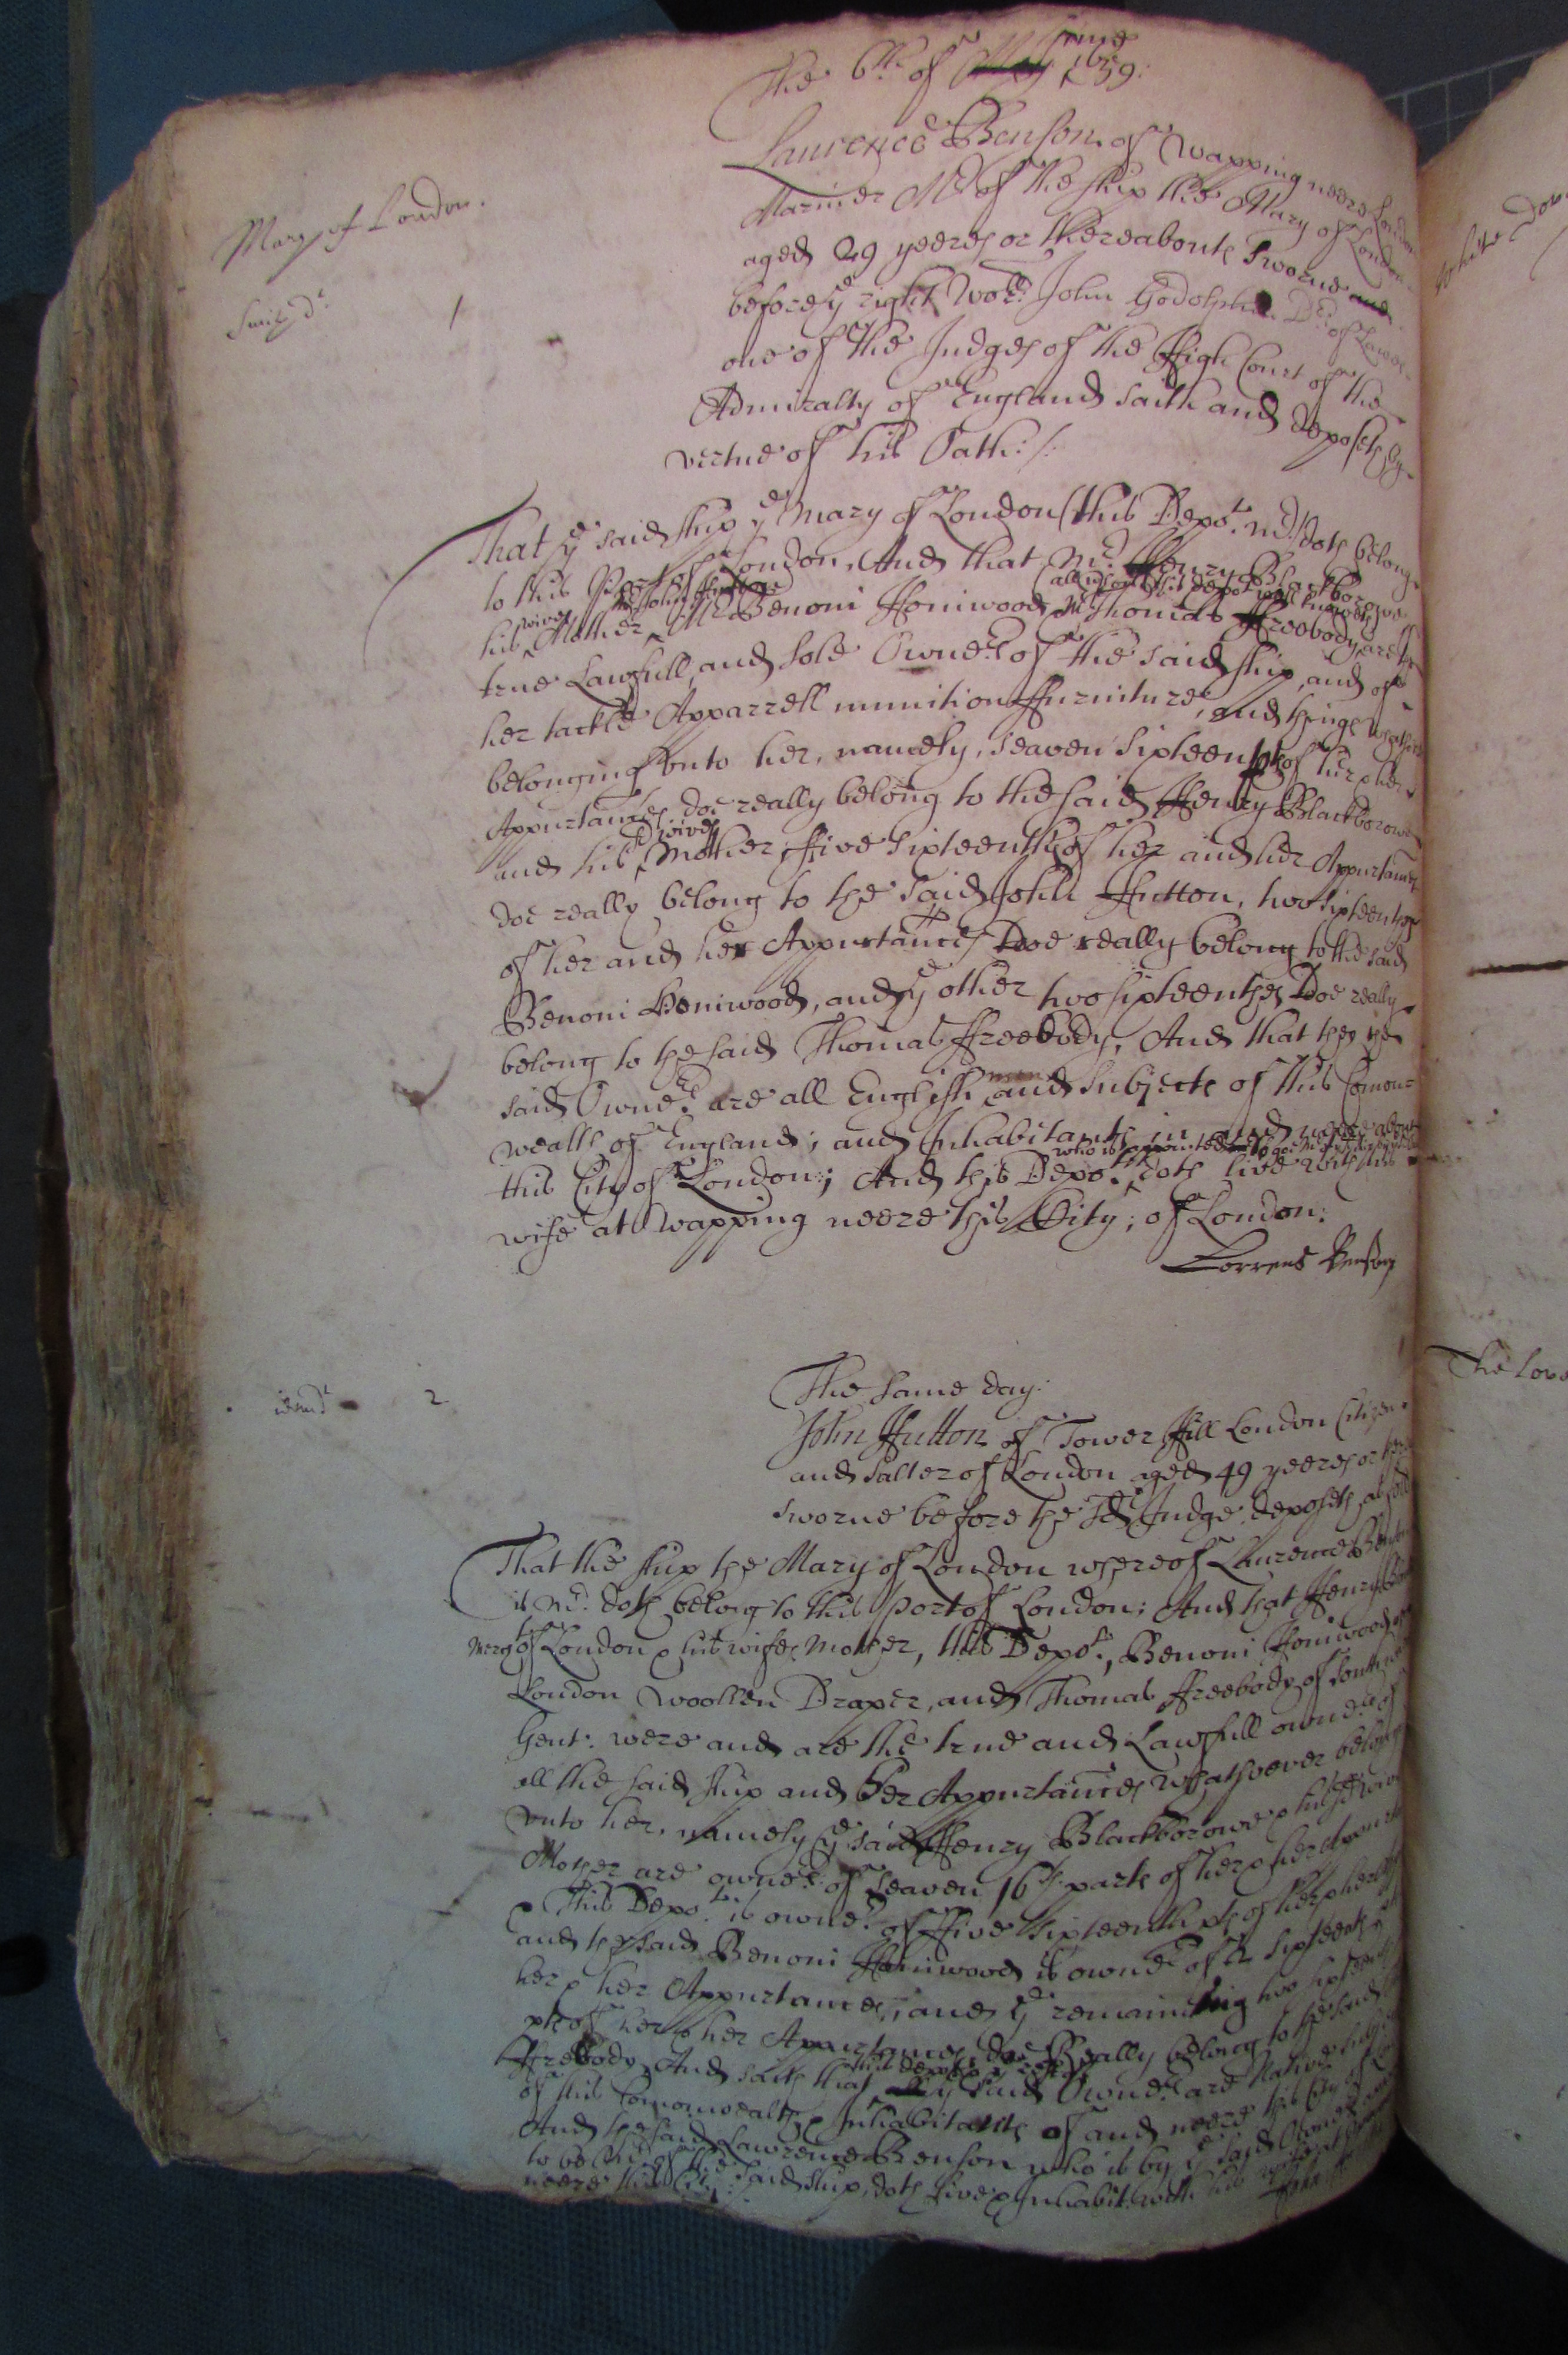 The 6th of May June 1659:
Mary of London.
Smith dt 1
Laurence Benson of Wapping neere London
Marriner Mr of the ship the Mary of London
aged 29 yeeres or thereabouts sworne and
before ye right Worll John Godolphin Dr of Lawes
one of the Judges of the High Court of the
Admiralty of England saith and deposeth by
vertue of his Oath:/:
That ye said ship ye Mary of London (this Depot Mr) doth belong
to this Port of London, And that Mr Henry Blackborowe &
wives Mr John Hutton all whom this depot well knoweth
his Mother, Mr Benoni Honiwood & Mr Thomas Freebody, are the
true Lawfull, and sole Owners of the said ship, and of
her tackle Apparrell munition ffurniture, and things whatsoever
belonging unto her, namely, seaven sixteenth pts of her & her
Appurtances doe really belong to the said Henry Blackborowe
sd wives
and his Mother, ffive sixteenths of her and her Appurtances
doe really belong to the said John Hutton, two sixteenths
of her and her Appurtances Doe really belong to the said
Benoni Honiwood, and ye other two sixteenths Doe really
belong to the said Thomas Freebody, And that they the
men
said Owners are all English and subjects of this Comon=
wealth of England; and Inhabitants in and neere about
who is appointed
this City of London; And this Depot doth live with his
wife at Wapping neere this City; of London:
Lorrens Benson
The same day:
idem dt 2
John Hutton of Tower Hill London Citizen
and Salter of London aged 49 yeeres or
sworne before the sd Judge, deposeth as
That the ship the Mary of London whereof Laurence Benson
is Mr. doth belong to this port of London; And that Henry
Mercht of London & his wifes Mother, this Depot, Benoni Honiwood of
London Woollen Draper, and Thomas Freebody of
Gent: were and are the true and Lawfull owners of
all the said ship and her Appurtances whatsoever belonging
unto her, namely ye said Henry Blackborowe & his sd wives
Mother are owners of seaven 16th parts of her & her Appurtances
& This Depot is owner of ffive sixteenth pts of her & her
and the said Benoni Honiwood is owner of 2 sixteenth pts of
her & her Appurtances, and ye remaining two sixteenth
pts of her & her Appurtances doe Really belong to the said
this depot & ye rest of
Freebody, And saith that ye said Owners are Natives &
of this Comonwealth, & Inhabitants of and neere this City of London
And the said Lawrence Benson who is by ye said Owners
to be Mr of the said ship, doth live & Inhabit with his wife at
neere this City:
White Dove
The Love